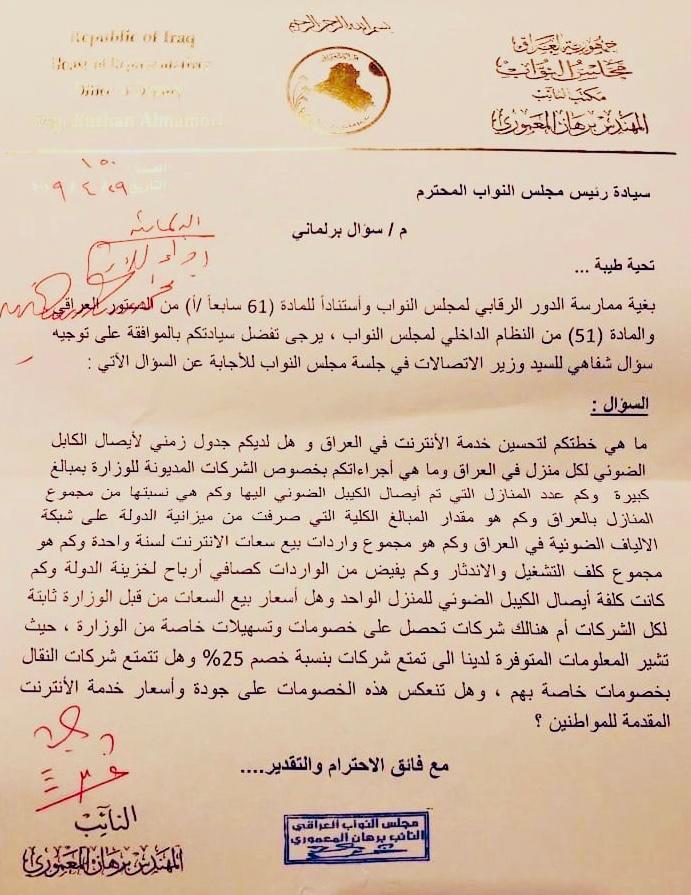 بسم الله الرحمن الرحيم
Republic of Iraq
House of Representatives
جمهورية العراق
مجلس النواب
مكتب النائب
المهندس برهان المعموري
العدد
١٥٠
التاريخ
٢٩ / ٤ /
سيادة رئيس مجلس النواب المحترم
م / سؤال برلماني
تحية طيبة ...
بغية ممارسة الدور الرقابي لمجلس النواب وأستناداً للمادة (61 سابعاً /أ) من الدستور العراقي
والمادة (51) من النظام الداخلي لمجلس النواب ، يرجى تفضل سيادتكم بالموافقة على توجيه
سؤال شفاهي للسيد وزير الاتصالات في جلسة مجلس النواب للأجابة عن السؤال الأتي :
السؤال :
ما هي خطتكم لتحسين خدمة الأنترنت في العراق و هل لديكم جدول زمني لأيصال الكابل
الضوئي لكل منزل في العراق وما هي أجراءاتكم بخصوص الشركات المديونة للوزارة بمبالغ
كبيرة وكم عدد المنازل التي تم أيصال الكيبل الضوئي اليها وكم هي نسبتها من مجموع
المنازل بالعراق وكم هو مقدار المبالغ الكلية التي صرفت من ميزانية الدولة على شبكة
الالياف الضوئية في العراق وكم هو مجموع واردات بيع سعات الانترنت لسنة واحدة وكم هو
مجموع كلف التشغيل والاندثار وكم يفيض من الواردات كصافي أرباح لخزينة الدولة وكم
كانت كلفة أيصال الكيبل الضوئي للمنزل الواحد وهل أسعار بيع السعات من قبل الوزارة ثابتة
لكل الشركات أم هنالك شركات تحصل على خصومات وتسهيلات خاصة من الوزارة ، حيث
تشير المعلومات المتوفرة لدينا الى تمتع شركات بنسبة خصم 25% وهل تتمتع شركات النقال
بخصومات خاصة بهم ، وهل تنعكس هذه الخصومات على جودة وأسعار خدمة الأنترنت
المقدمة للمواطنين ؟
مع فائق الاحترام والتقدير....
النائب
المهندس برهان المعموري
مجلس النواب العراقي
النائب برهان المعموري